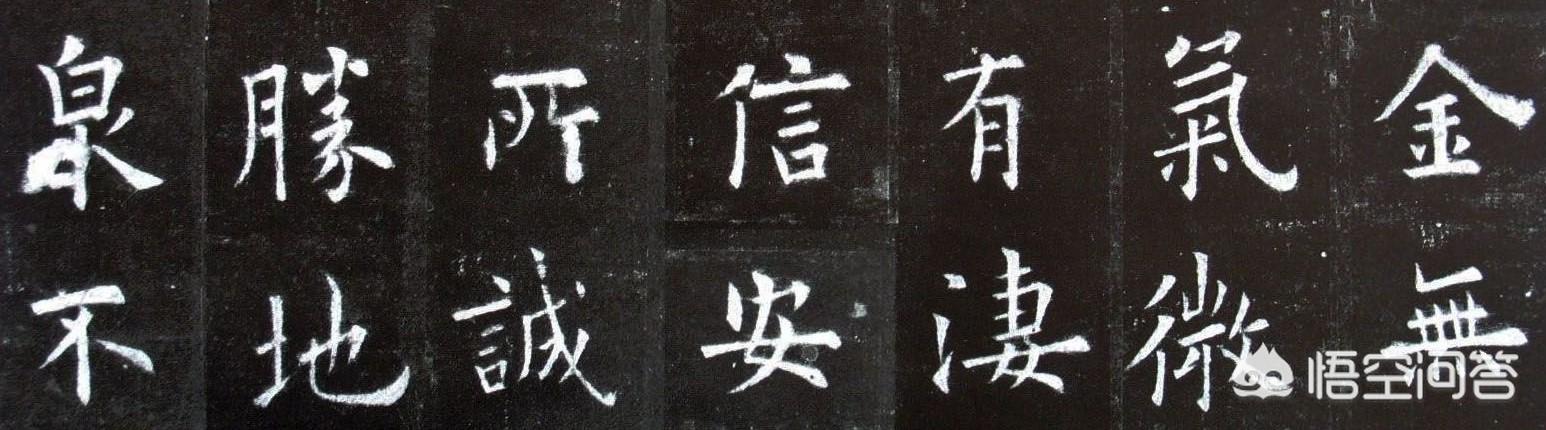 金無
氣微
有凄
信安
所誠
勝地
泉不
悟空问答